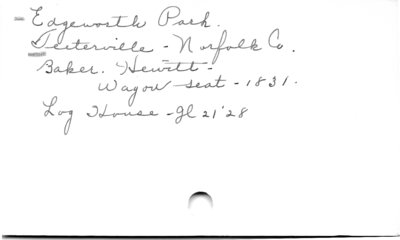 Edgeworth Park.
Teeterville - Norfolk Co.
Baker. Hewitt -
Wagon seat - 1831.
Log House - gl 21'28